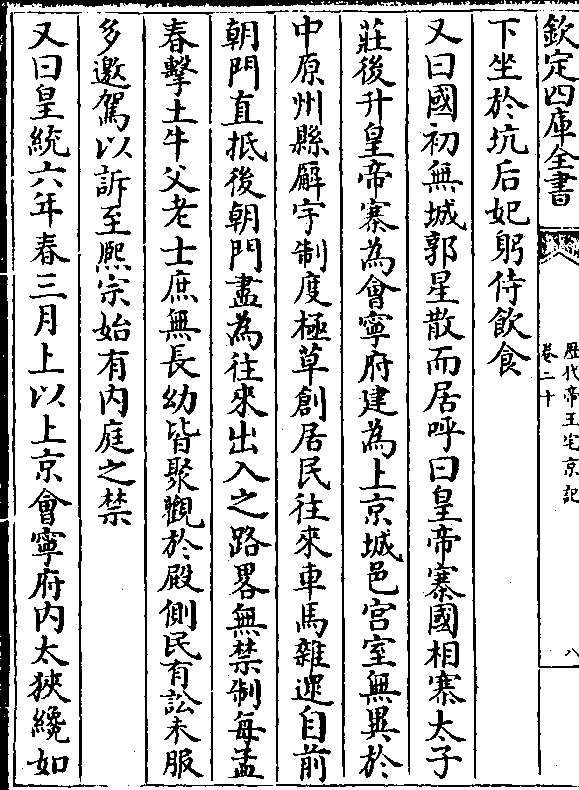 欽定四庫全書
歷代帝王宅京記
卷二十
八
下坐於坑后妃躬侍飲食
又曰國初無城郭星散而居呼曰皇帝寨國相寨太子
莊後升皇帝寨為會寧府建為上京城邑宫室無異於
中原州縣廨宇制度極草創居民往來車馬雜遝自前
朝門直抵後朝門盡為往來出入之路畧無禁制每孟
春擊土牛父老士庶無長幼皆聚觀於殿側民有訟未服
多邀駕以訴至熙宗始有内庭之禁
又曰皇統六年春三月上以上京會寧府内太狹纔如